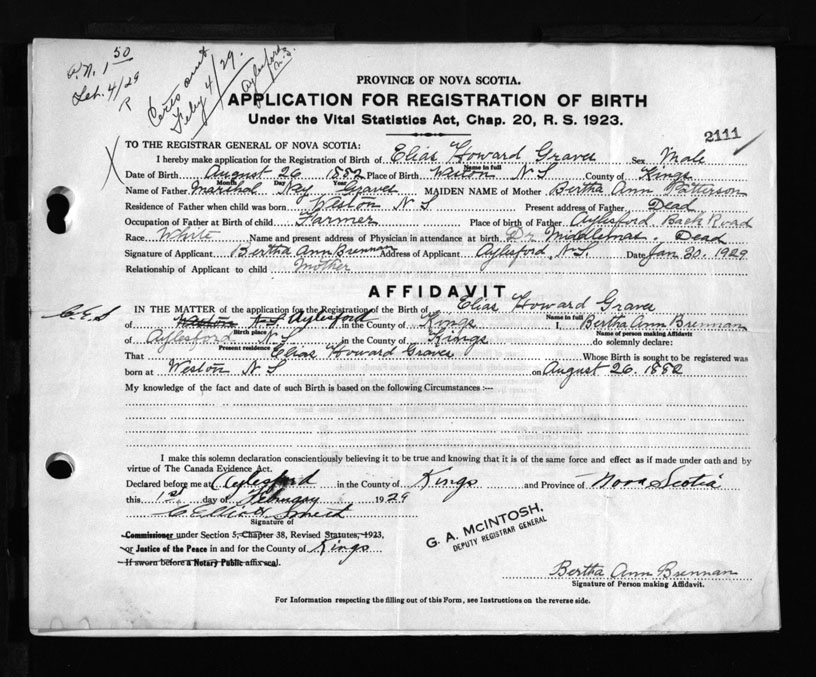 1 50
Feb. 4/29
R
Certs out
Feby 4/29.
Aylesford
N.S.
PROVINCE OF NOVA SCOTIA.
APPLICATION FOR REGISTRATION OF BIRTH
Under the Vital Statistics Act, Chap. 20, R. S. 1923.
2111
TO THE REGISTRAR GENERAL OF NOVA SCOTIA:
I hereby make application for the Registration of Birth of Elias Howard Graves Sex Male
Name in full
Date of Birth August 26 1882 Place of Birth Weston N S County of Kings
Month Day Year
Name of Father Graves MAIDEN NAME of Mother Bertha Ann Patterson
Residence of Father when child was born Weston N S Present address of Father Dead
Occupation of Father at Birth of child Farmer Place of birth of Father Aylesford Back Road
Race White Name and present address of Physician in attendance at birth Dr Dead
Signature of Applicant Bertha Ann Brennan Address of Applicant Aylesford N.S. Date Jan 30. 1929
Relationship of Applicant to child Mother
AFFIDAVIT
IN THE MATTER of the application for the Registration of the Birth of Elias Howard Graves
Name in full
C.E.S
of Weston N.S Aylesford in the County of Kings I, Bertha Ann Brennan
Birth place Name of person making Affidavit
of Aylesford N. S in the County of Kings do solemnly declare:
Present residence
That Elias Howard Graves Whose Birth is sought to be registered was
born at Weston N S on August 26. 1882
My knowledge of the fact and date of such Birth is based on the following Circumstances :—
I make this solemn declaration conscientiously believing it to be true and knowing that it is of the same force and effect as if made under oath and by
virtue of The Canada Evidence Act.
Declared before me at Aylesford in the County of Kings and Province of Nova Scotia
this 1st day of February 1929
Signature of
Commissioner under Section 5, Chapter 38, Revised Statutes, 1923,
or Justice of the Peace in and for the County of Kings
If sworn before a Notary Public affix seal.
G. A. McINTOSH,
DEPUTY REGISTRAR GENERAL
Bertha Ann Brennan
Signature of Person making Affidavit.
For Information respecting the filling out of this Form, see Instructions on the reverse side.